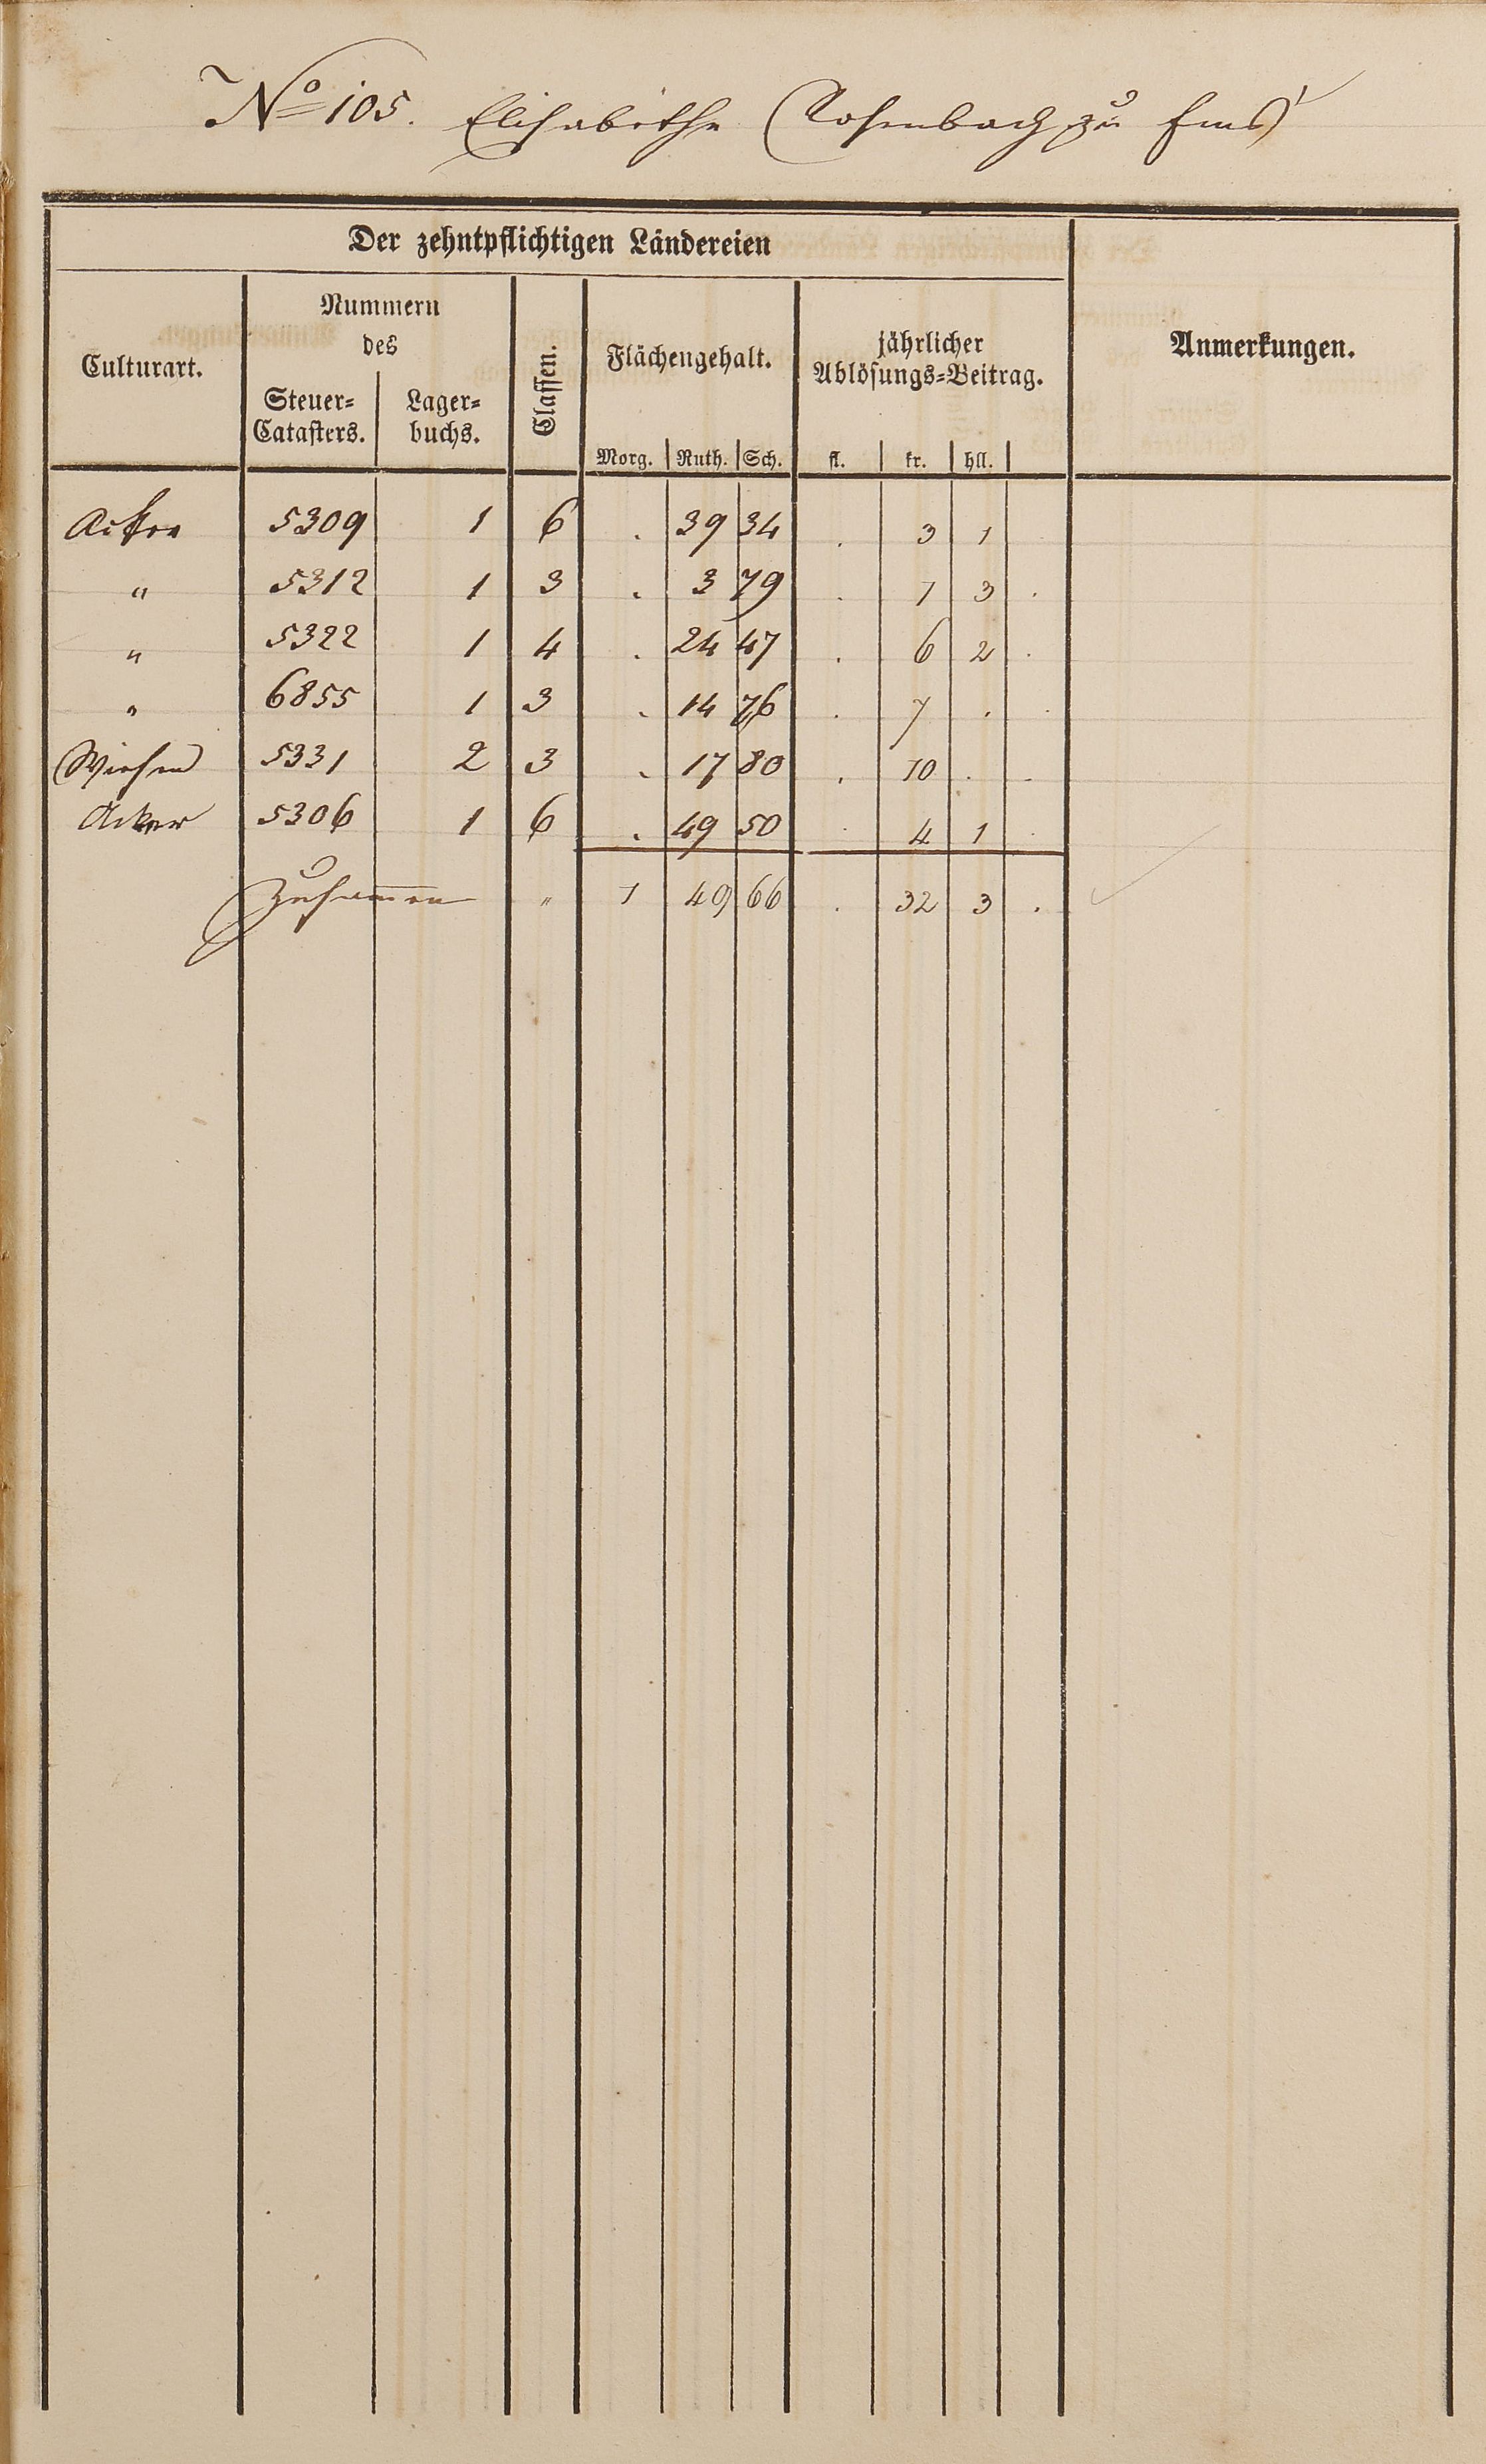 No 105. Elisabethe Rosenbach zu Ems
Der zehntpflichtigen Ländereien
Culturart.
Nummern
des
Steuer=
Catasters.
Lager=
buchs.
Classen.
Flächengehalt.
Morg. Ruth. Sch.
jährlicher
Ablösungs=Beitrag.
fl. kr. hll.
Anmerkungen.
Acker 5309 1 6 . 39 34 . 3 1
" 5312 1 3 . 3 79 . 1 3 .
" 5322 1 4 . 24 47 . 6 2 .
" 6855 1 3 . 14 76 . 7 . .
Wiesen 5331 2 3 . 17 80 . 10 . .
Acker 5306 1 6 . 49 50 . 4 1 .
Zusammen " 1 49 66 . 32 3 .